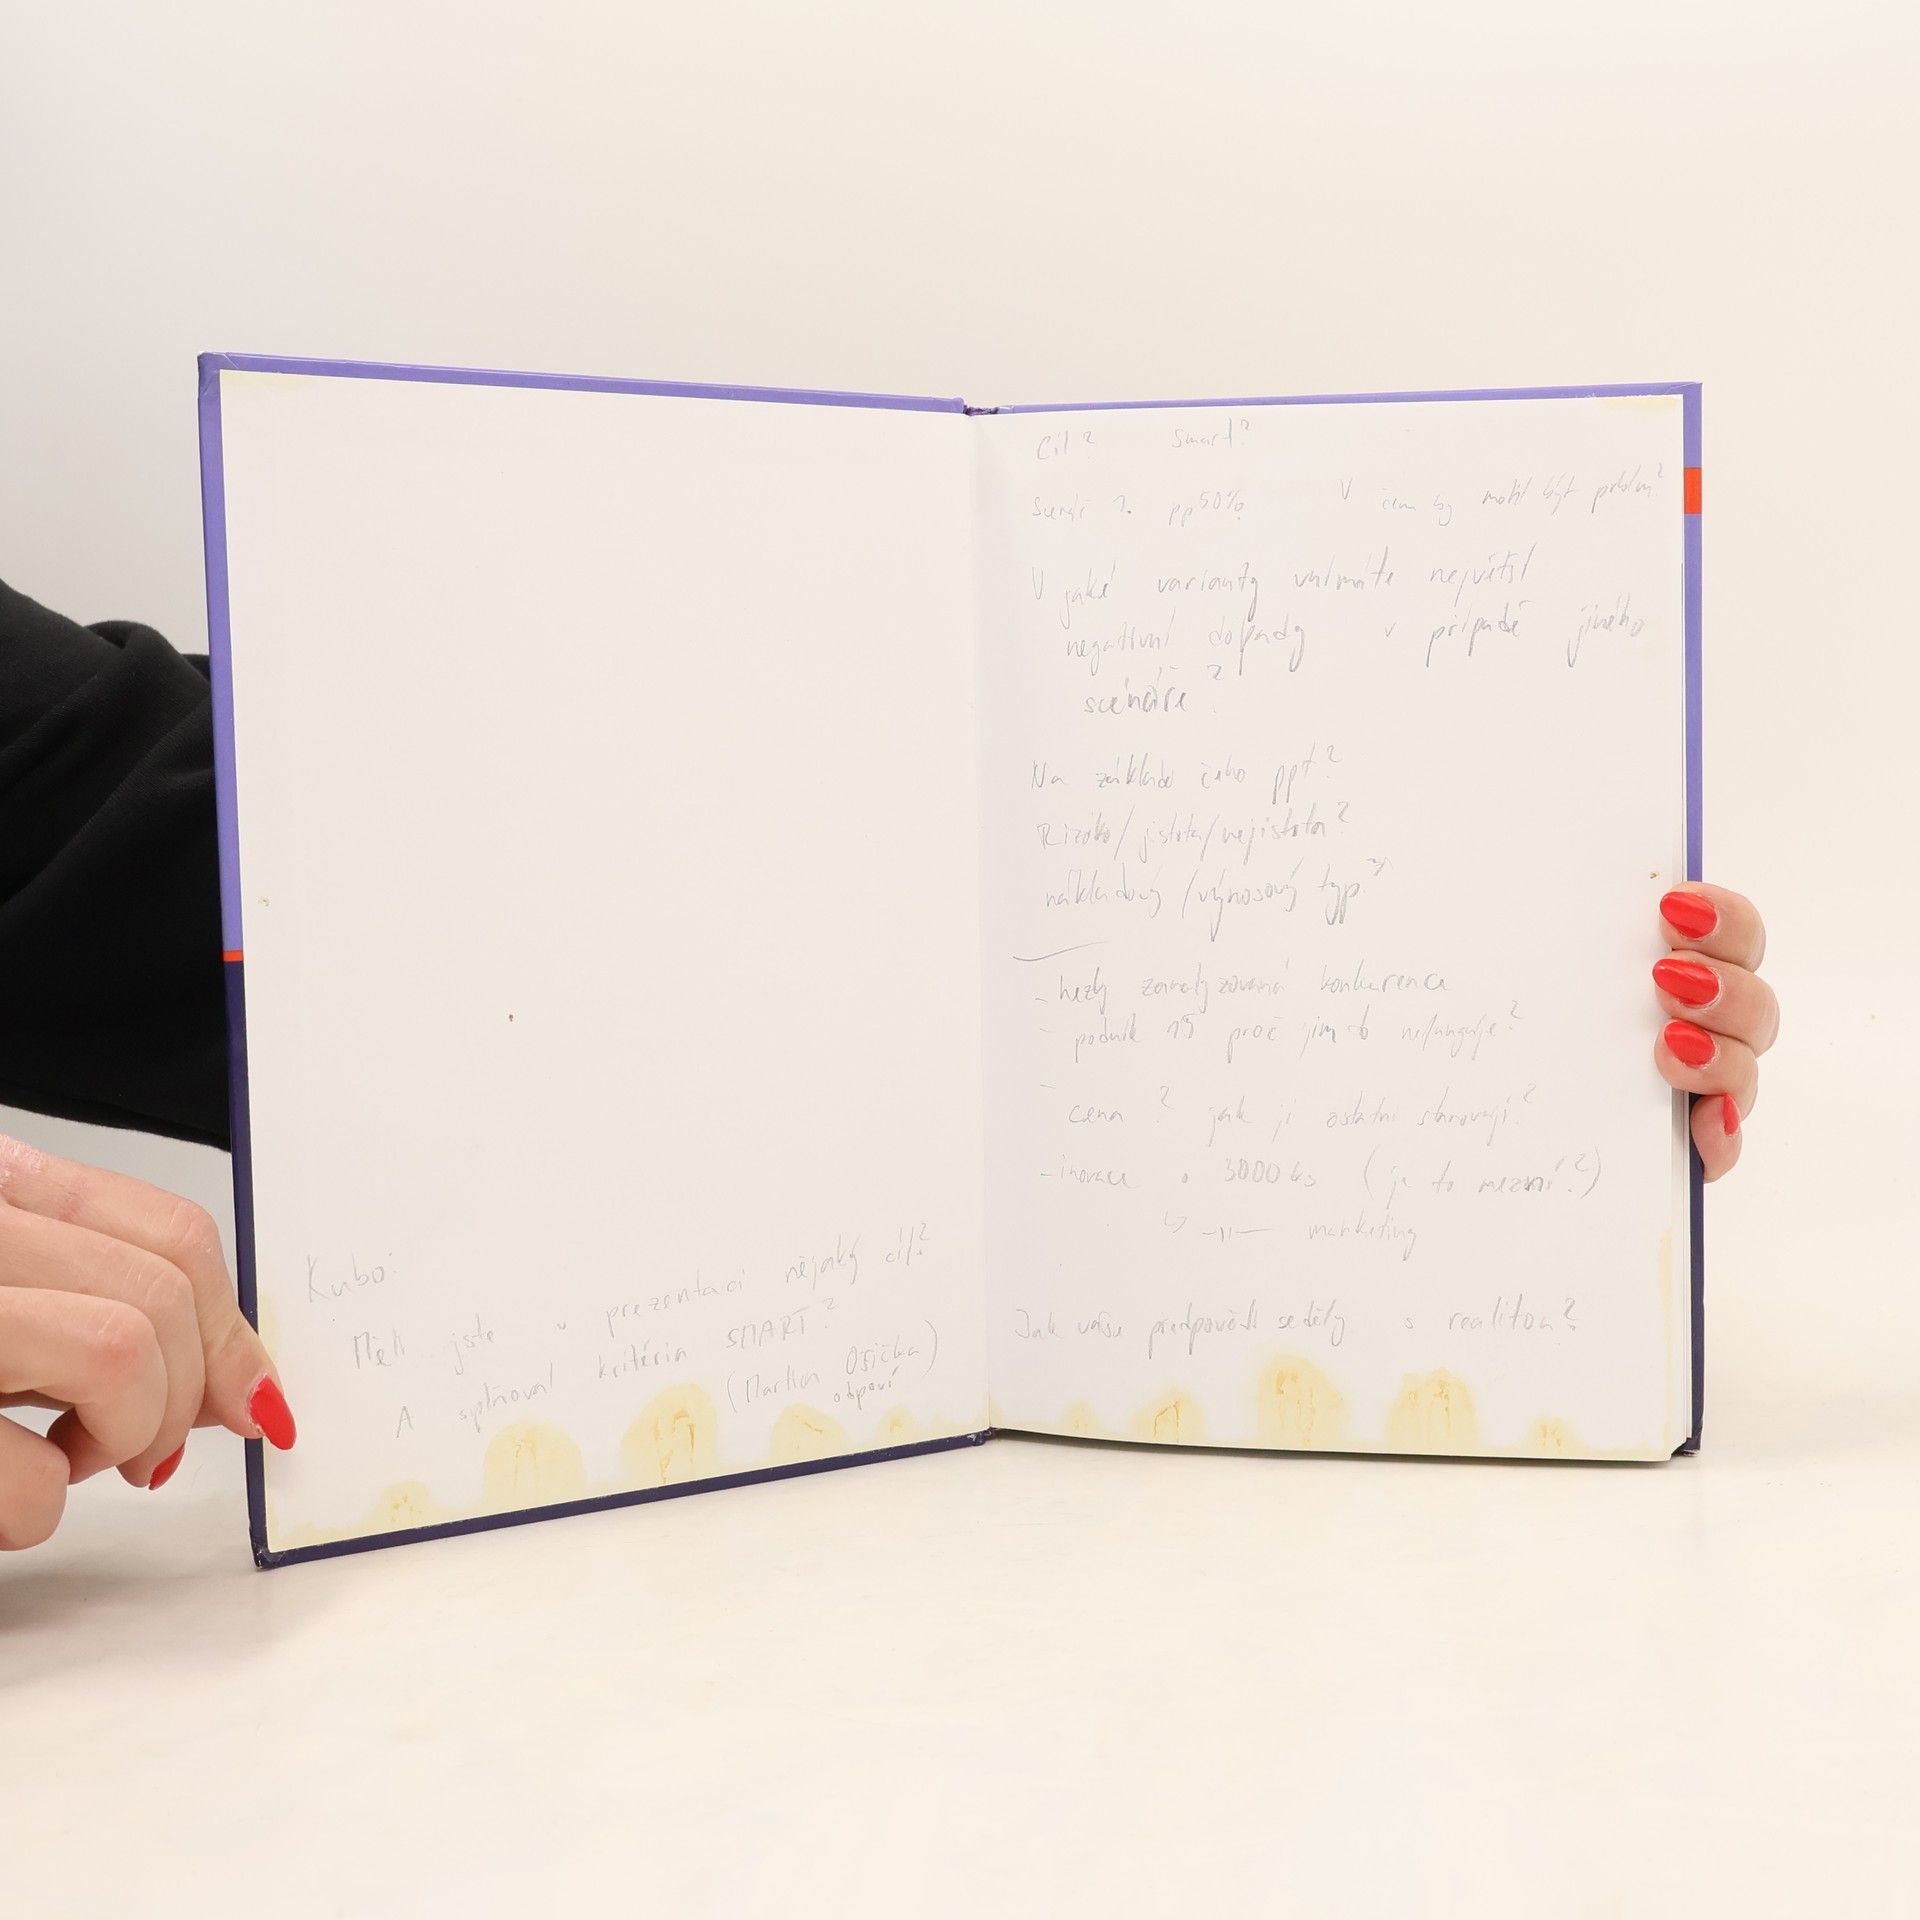 Kubo:
Měli jste v prezentaci nějaký cíl?
A splňoval kritéria SMART?
(Martin Ožička
odpoví)
Cíl? Smart?
Scénář 1. pp 50% V čem by mohl být problm?
V jaké varianty vnímáte největší
negativní dopady v případě jiného
scénáře?
Na základě čeho ppt?
Riziko/jistota/nejistota?
nákladový/výnosový typ?
- hezky zanalyzovaná konkurence
- podnik 15 proč jim to nefunguje?
- cena? jak ji ostatní stanovují?
- inovace o 3000 ks (je to mezní?)
↳ —||— marketing
Jak vaše předpovědi seděly s realitou?